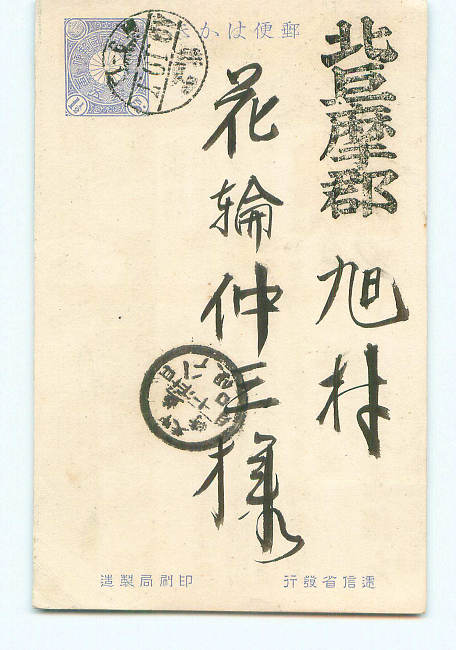 郵便はかき
北巨摩郡 旭村
花輪仲三様
逓信省發行
印刷局製造